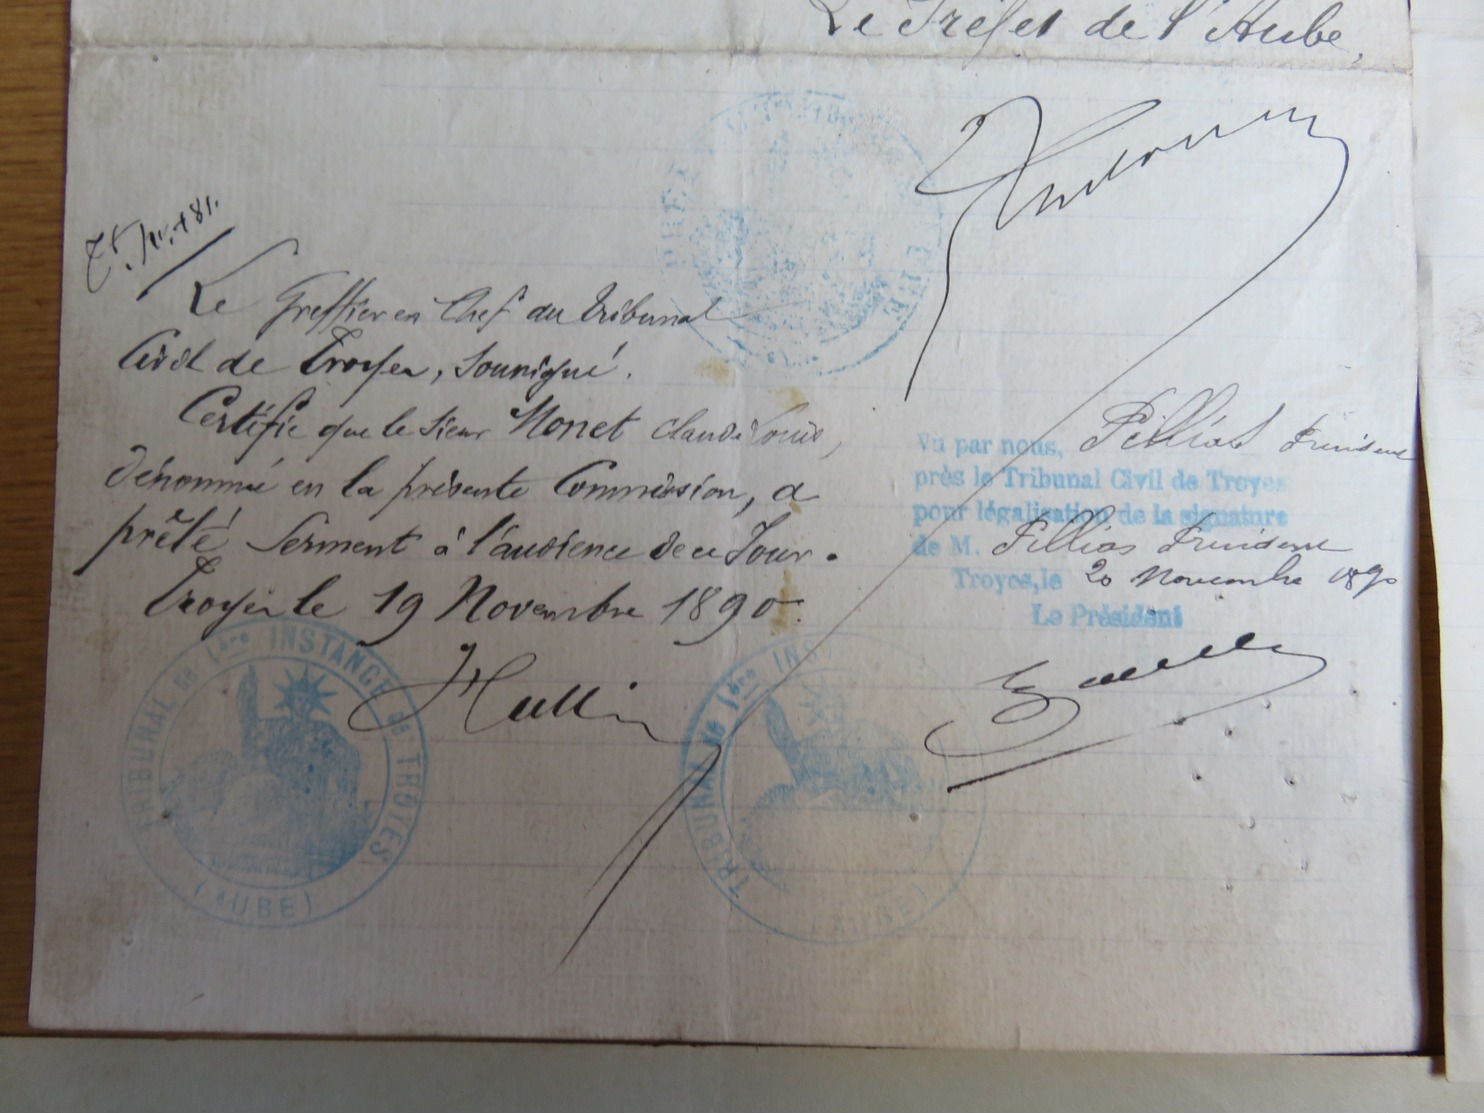 Le Préfet de l'Aube,
PRÉF
Le Greffier en Chef du tribunal
Civil de Troyes, soussigné.
Certifie que le sieur Monet Claude Louis,
dénommé en la présente Commission, a
prêté Serment à l'audience de ce Jour.
Troyes le 19 Novembre 1890
Hullin
Vu par nous, Pillias Président
près le Tribunal Civil de Troyes
pour légalisation de la signature
de M. Pillias Président
Troyes, le 20 Novembre 1890
Le Président
TRIBUNAL DE 1ère INSTANCE DE TROYES
(AUBE)
TRIBUNAL DE 1ère INS
(AUBE)